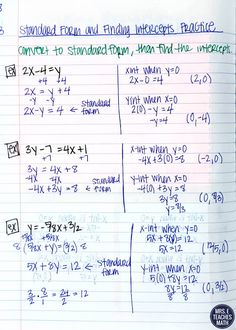 Standard Form and Finding Intercepts Practice
Convert to standard form, then find the intercepts.
ex
2x-4=y
+4 +4
2x = y+4
-y -y
2x-y = 4 ← standard form
x int when y=0
2x-0=4 (2,0)
y int when x=0
2(0)-y=4
-y=4 (0,-4)
ex
3y-7=4x+1
+7 +7
3y = 4x+8
-4x -4x
-4x+3y=8 standard form
x-int when y=0
-4x+3(0)=8 (-2,0)
y-int when x=0
-4(0)+3y=8
3y=8
y=8/3 (0,8/3)
ex
y=-5/8x+3/2
8 8
5x+8y=12 ← standard form
3/2 · 8 = 24/2 = 12
x-int when y=0
5x+8(0)=12
5x=12
y-int when x=0
5(0)+8y=12
8y=12 (0,3/2)
8 8
MRS. E TEACHES MATH